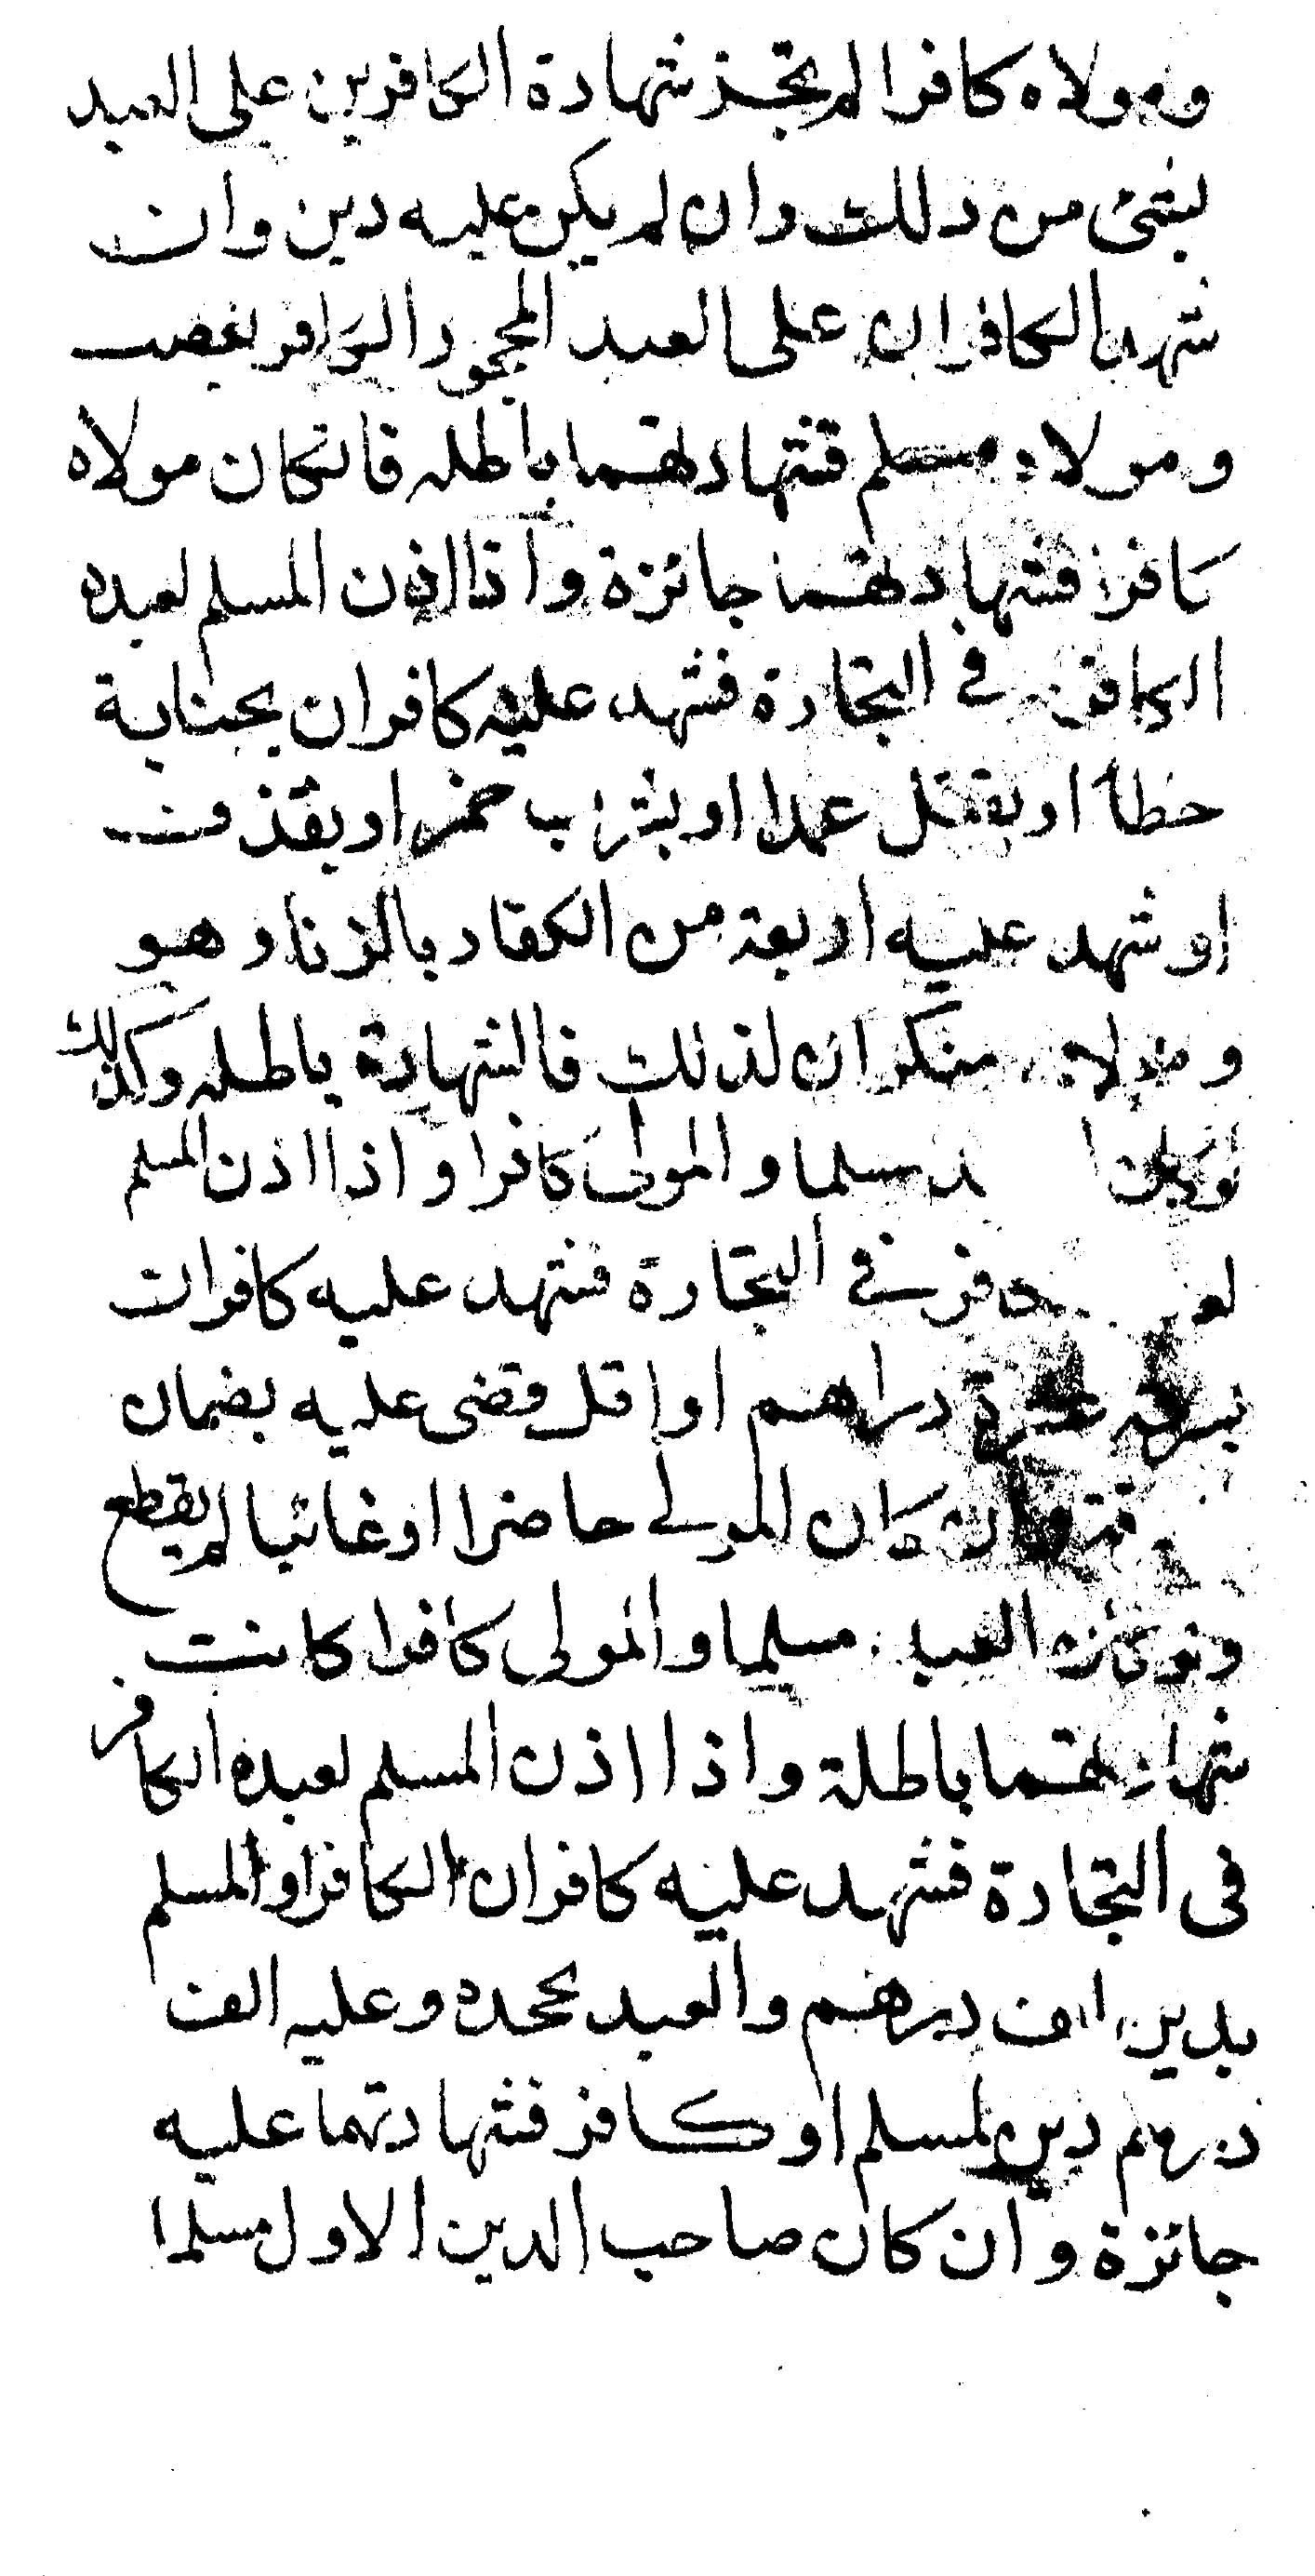 ومولاه كافرا لم تجز شهادة الكافرين على العبد
بشئ من ذلك وان لم يكن عليه دين وان
شهد الكافران على العبد المحجور الكافر بغصب
ومولاه مسلم فشهادتهما باطله فان كان مولاه
كافرا فشهادتهما جائزة واذا اذن المسلم لعبده
الكافر في التجارة فشهد عليه كافران بجناية
خطأ او بقتل عمدا او بشرب خمر او بقذف
او شهد عليه اربعة من الكفار بالزنا وهو
ومولاه منكران لذلك فالشهادة باطله وكذلك
لو كان مسلما والمولى كافرا واذا اذن المسلم
في التجارة فشهد عليه كافران
بسرقة عشرة دراهم او اقل قضى عليه بضمان
كان المولى حاضرا او غائبا لم يقطع
ولو كان العبد مسلما والمولى كافرا كانت
شهادتهما باطلة واذا اذن المسلم لعبده الكافر
في التجارة فشهد عليه كافران الكافر او المسلم
بدين الف درهم والعبد يجحده وعليه الف
درهم دين لمسلم او كافر فشهادتهما عليه
جائزة وان كان صاحب الدين الاول مسلما